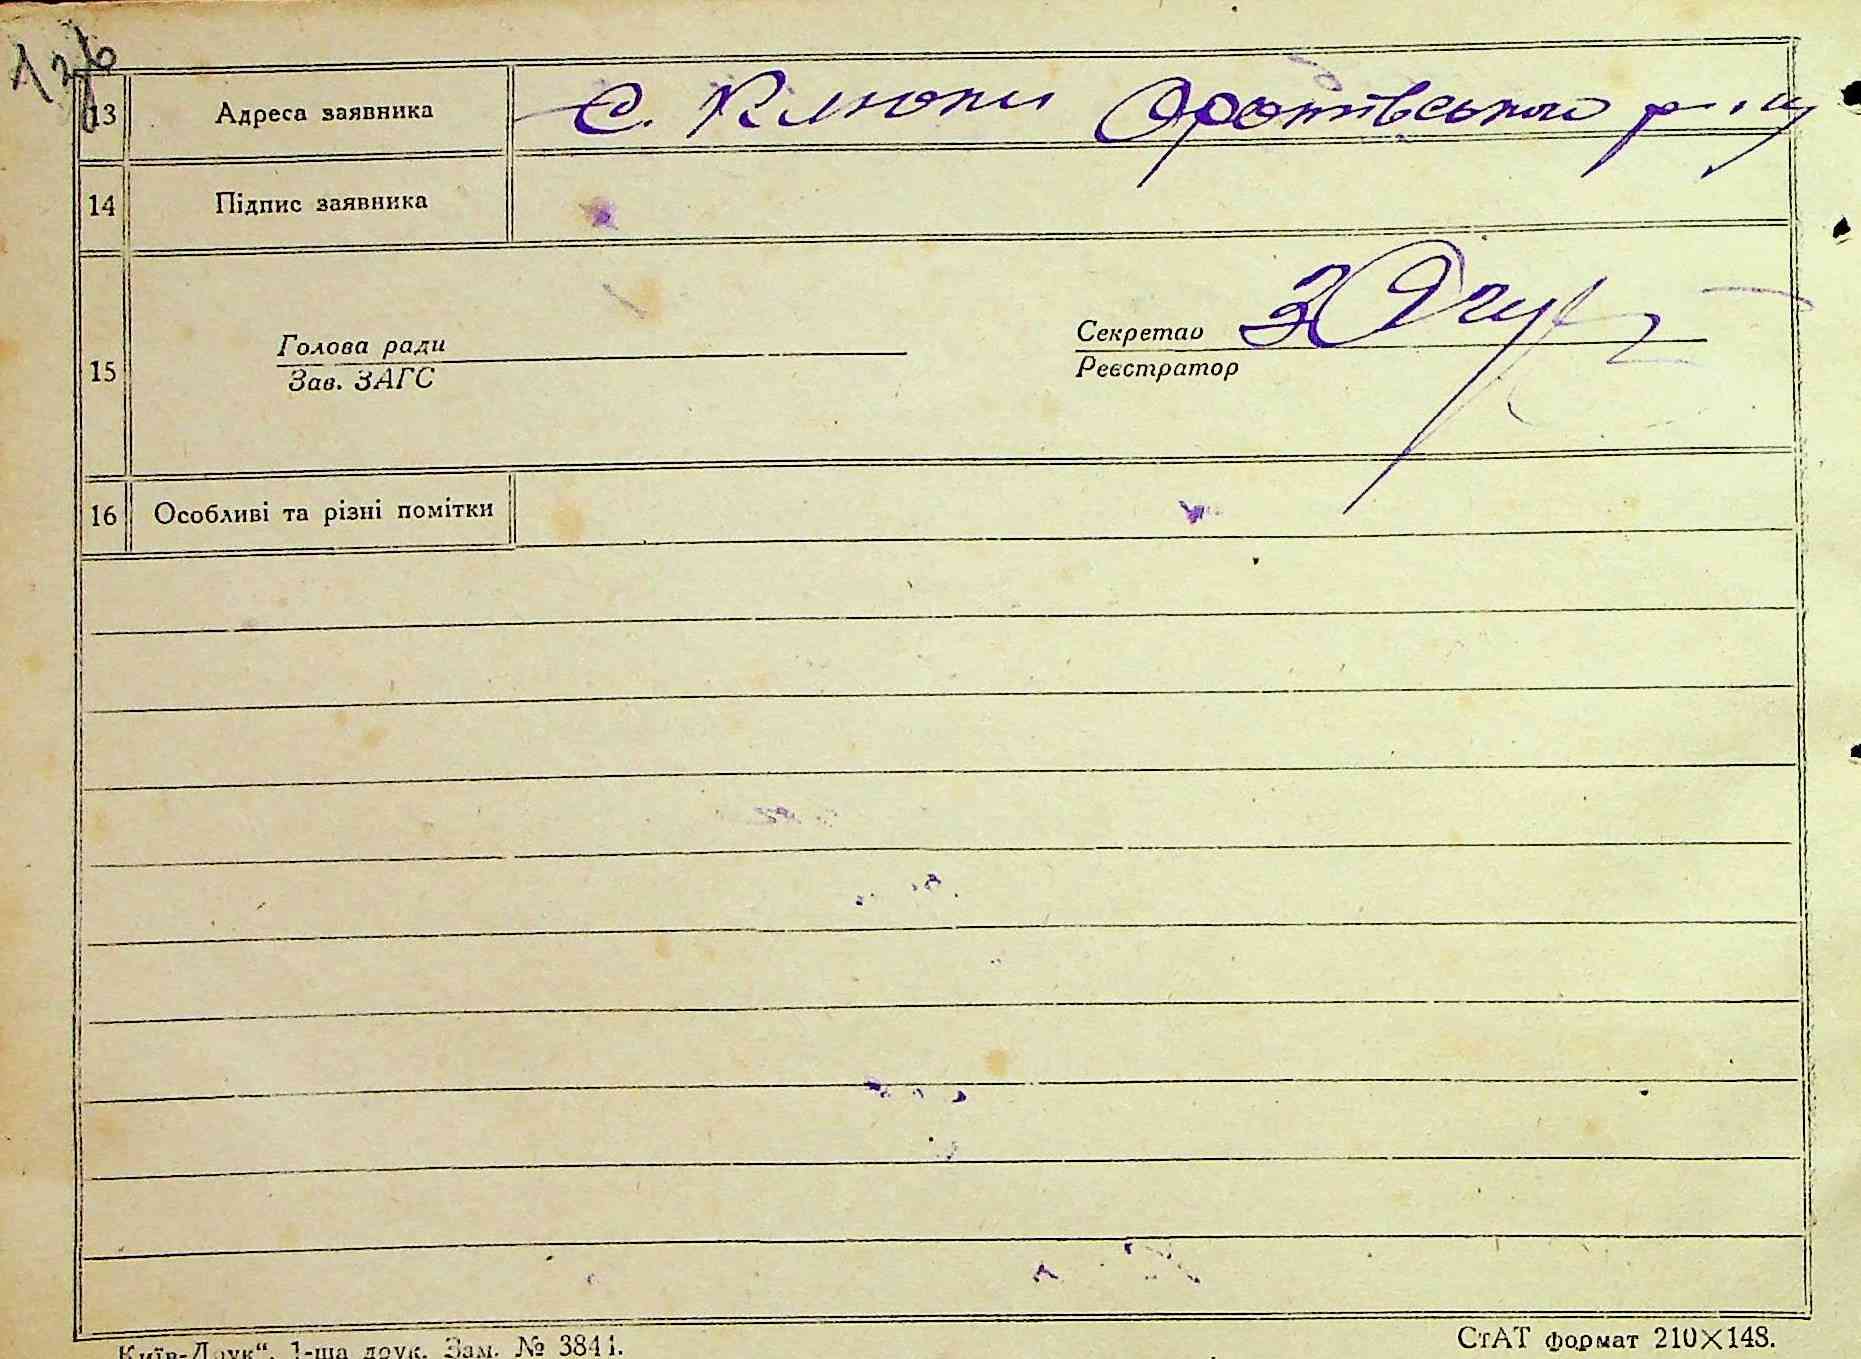 13б
13 Адреса заявника с. Клюки Оратівського р-ну
14 Підпис заявника
15 Голова ради Секретар
Зав. ЗАГС Реєстратор
16 Особливі та різні помітки
Київ-Друк“. 1-ша друк. Зам. № 3841. СтАТ формат 210×148.